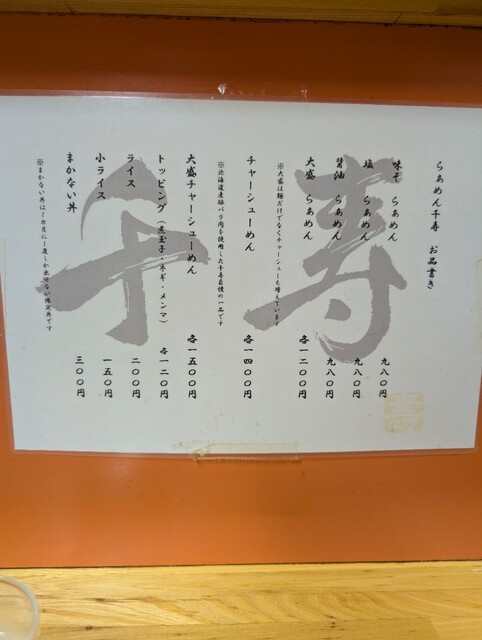 らぁめん千寿　お品書き
味そ　らぁめん　九八〇円
塩　らぁめん　九八〇円
醤油　らぁめん　九八〇円
大盛　らぁめん　各一二〇〇円
※大盛は麺だけでなくチャーシューも増えています
チャーシューめん　各一四〇〇円
※北海道産豚バラ肉を使用した千寿自慢の一品です
大盛チャーシューめん　各一五〇〇円
トッピング（煮玉子・ネギ・メンマ）　各一二〇円
ライス　二〇〇円
小ライス　一五〇円
まかない丼　三〇〇円
※まかない丼は一カ月に一度しか出せない限定丼です
千寿